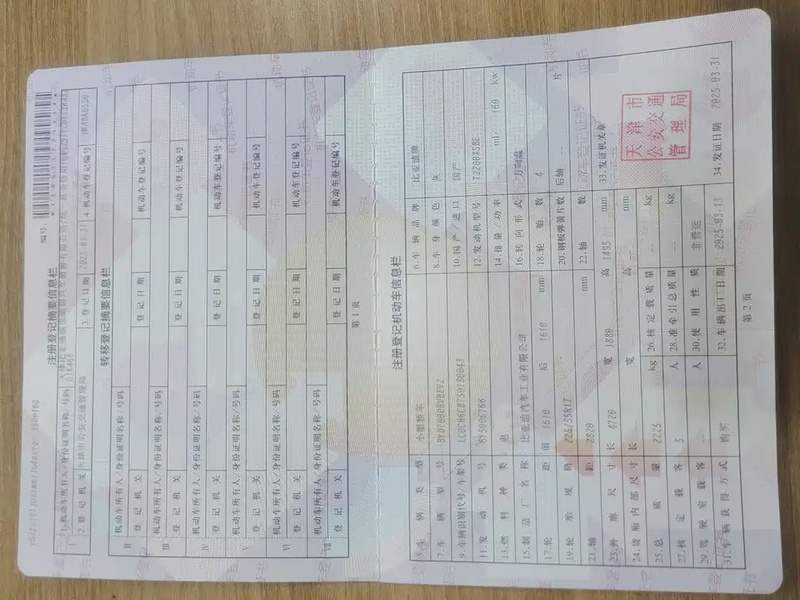 编号:
注册登记摘要信息栏
1.机动车所有人/身份证明名称/号码
2.登记机关 天津市公安交通管理局 3.登记日期 2025-03-31 4.机动车登记编号
转移登记摘要信息栏
Ⅱ 机动车所有人/身份证明名称/号码
登记机关 登记日期 机动车登记编号
Ⅲ 机动车所有人/身份证明名称/号码
登记机关 登记日期 机动车登记编号
Ⅳ 机动车所有人/身份证明名称/号码
登记机关 登记日期 机动车登记编号
Ⅴ 机动车所有人/身份证明名称/号码
登记机关 登记日期 机动车登记编号
Ⅵ 机动车所有人/身份证明名称/号码
登记机关 登记日期 机动车登记编号
Ⅶ 机动车所有人/身份证明名称/号码
登记机关 登记日期 机动车登记编号
第1页
注册登记机动车信息栏
5.车辆类型 小型轿车 6.车辆品牌 比亚迪牌
7.车辆型号 8.车身颜色 灰
9.车辆识别代号/车架号 10.国产/进口 国产
11.发动机号 12.发动机型号
13.燃料种类 电 14.排量/功率 ml/ 160 kw
15.制造厂名称 比亚迪汽车工业有限公司 16.转向形式 方向盘
17.轮距 前 1610 后 1610 mm 18.轮胎数 4
19.轮胎规格 225/55R17 20.钢板弹簧片数 后轴 片
21.轴距 2820 mm 22.轴数
23.外廓尺寸 长 4720 宽 1880 高 1495 mm 33.发证机关章
24.货厢内部尺寸 长 宽 高 mm
25.总质量 2225 kg 26.核定载质量 kg
27.核定载客 5 人 28.准牵引总质量 kg
29.驾驶室载客 人 30.使用性质 非营运
31.车辆获得方式 购买 32.车辆出厂日期 34.发证日期 2025-03-31
天津市
公安交通
管理局
第2页